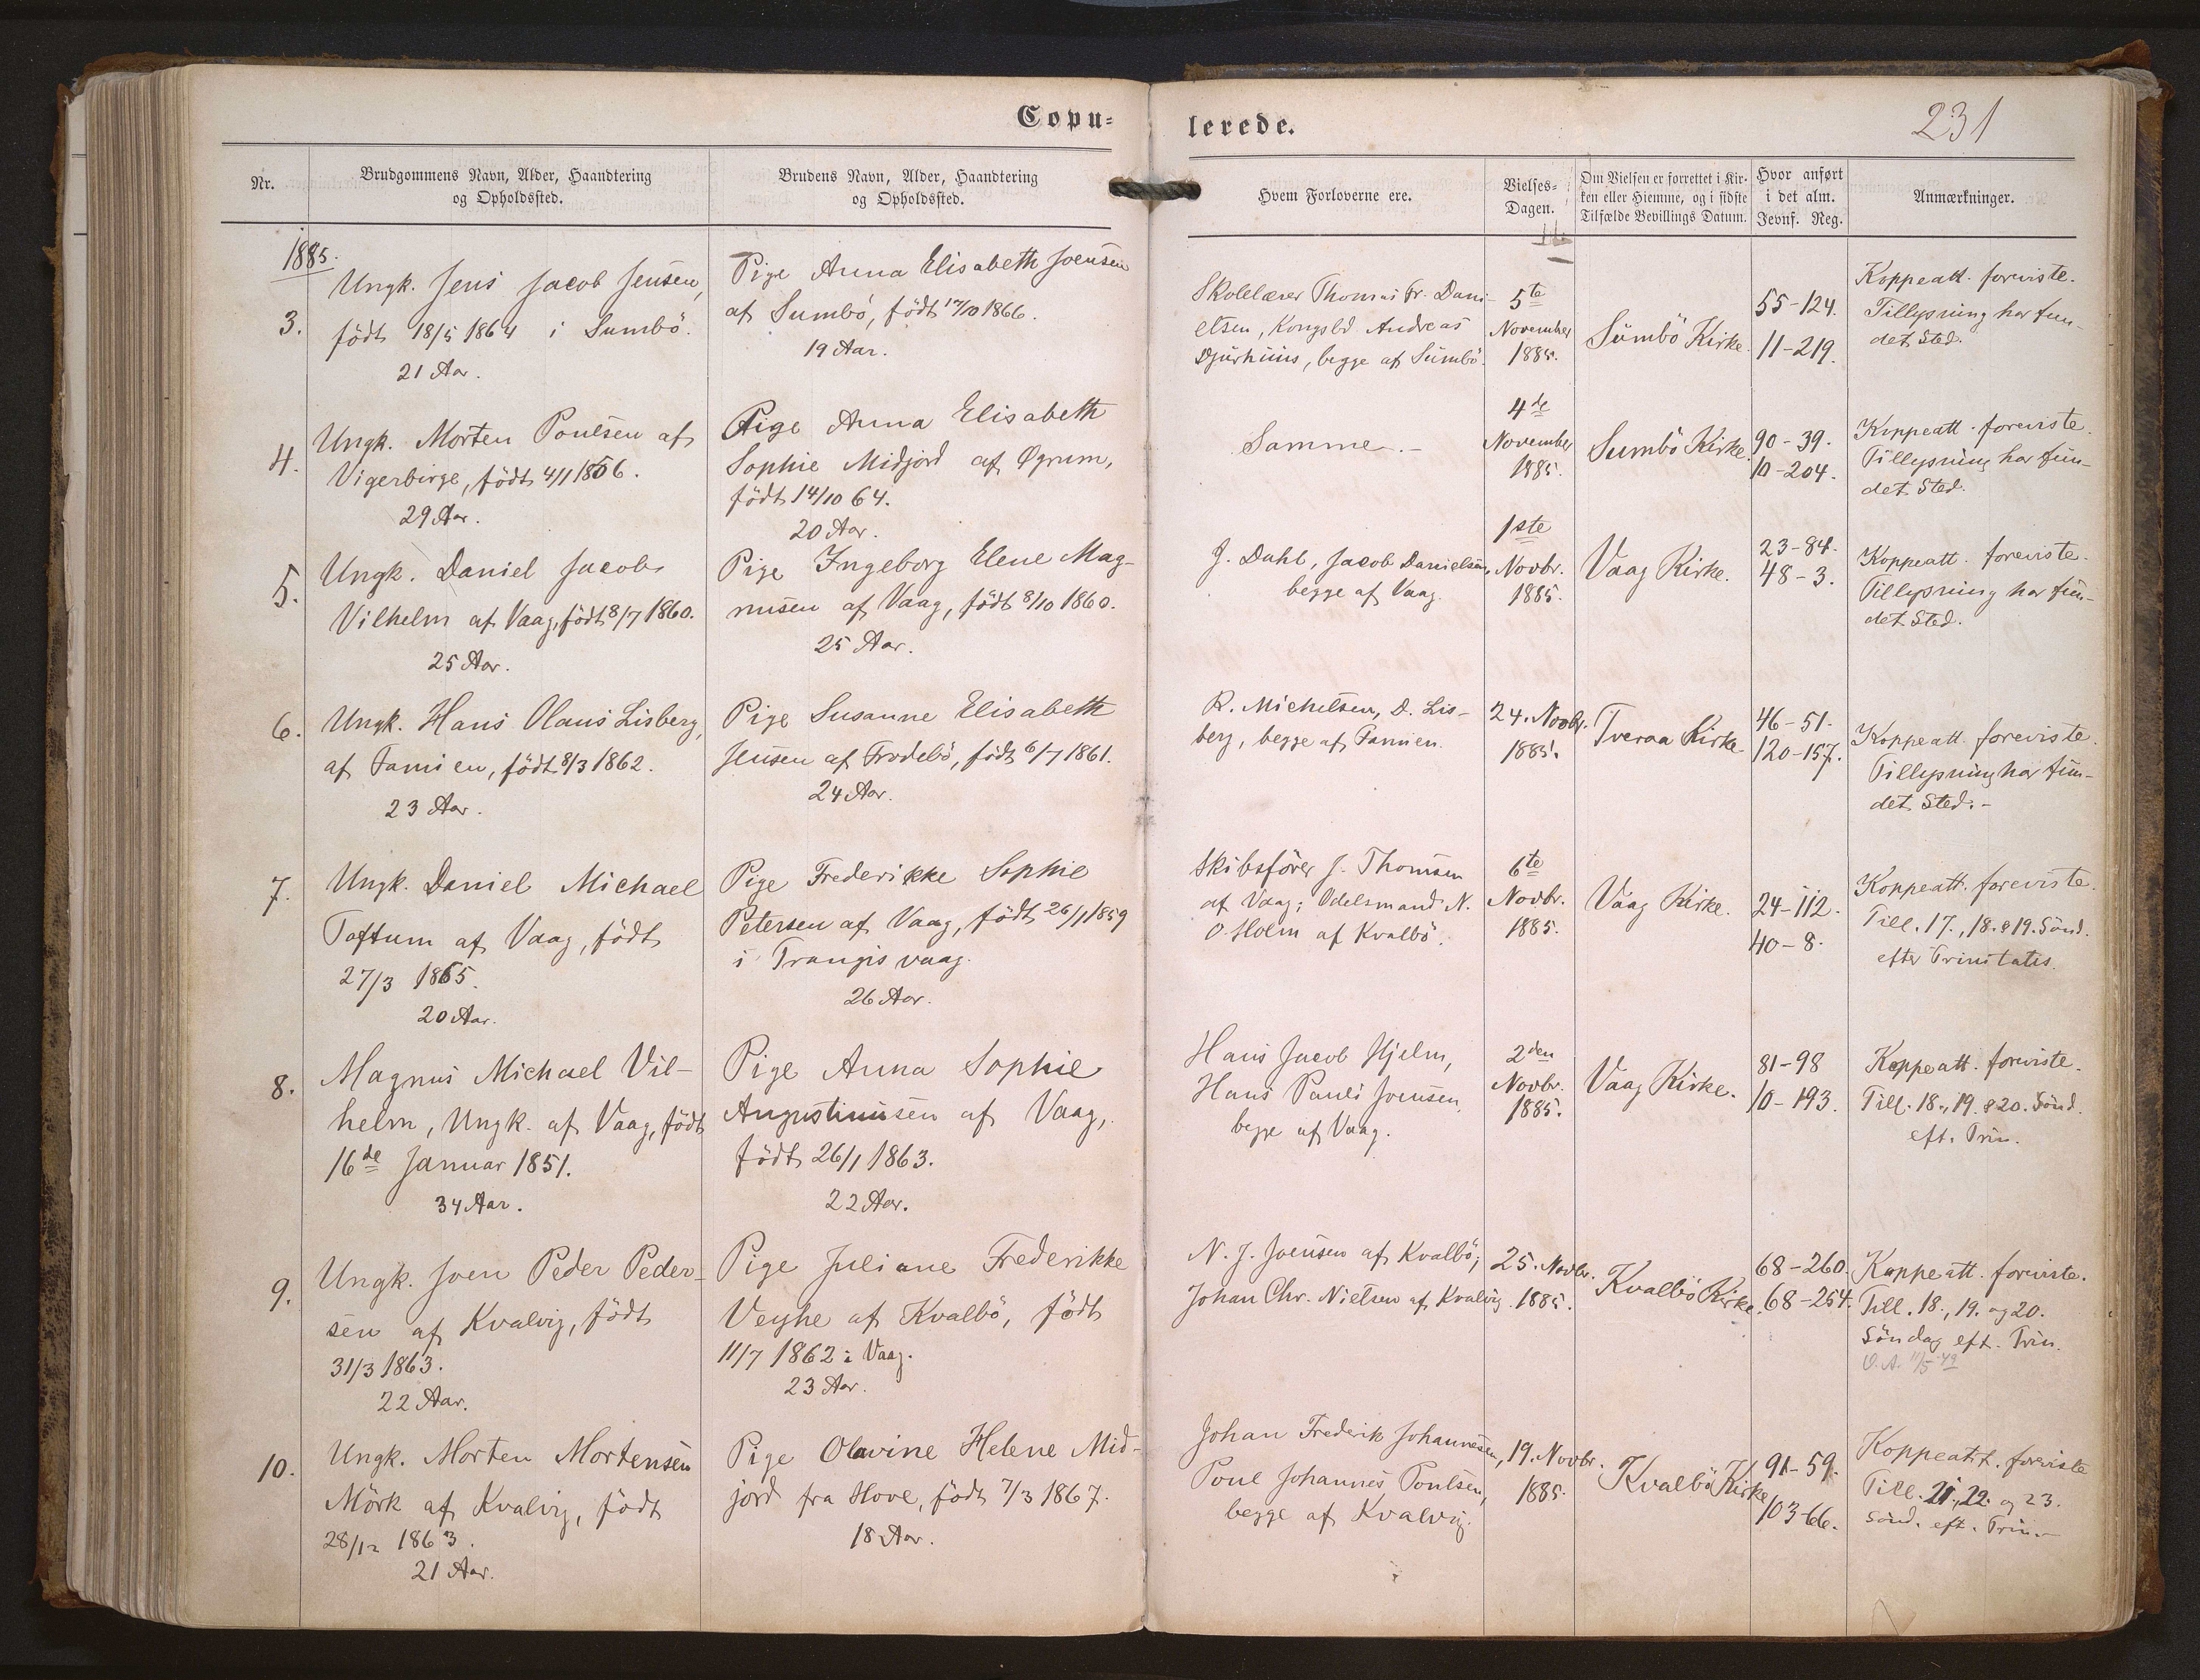 Copu-
lerede.
231
Nr.
Brudgommens Navn, Alder, Haandtering
og Opholdssted.
Brudens Navn, Alder, Haandtering
og Opholdssted.
Hvem Forloverne ere.
Vielses-
Dagen.
Om Vielsen er forrettet i Kir-
ken eller Hiemme, og i sidste
Tilfælde Bevillings Datum.
Hvor anført
i det alm.
Jevnf. Reg.
Anmærkninger.
1885.
3.
Ungk. Jens Jacob Jensen,
födt 18/5 1864 i Sumbö.
21 Aar.
Pige Anna Elisabeth Joensen
af Sumbö, födt 17/10 1866.
19 Aar.
Skolelærer Thomas Fr. Dani-
elsen, Kongsbd Andreas
Djurhuus, begge af Sumbö.
5te
November
1885.
Sumbö Kirke.
55-124.
11-219.
Koppeatt. foreviste.
Tillysning har fun-
det Sted.
4.
Ungk. Morten Poulsen af
Vigerbirge, födt 4/1 1856.
29 Aar.
Pige Anna Elisabeth
Sophie Midjord af Øgrum,
födt 14/10 64.
20 Aar.
Samme.-
4de
November
1885.
Sumbö Kirke.
90-39.
10-204.
Koppeatt. foreviste.
Tillysning har fun-
det Sted.
5.
Ungk. Daniel Jacob
Vilhelm af Vaag, födt 8/7 1860.
25 Aar.
Pige Ingeborg Elene Mag-
nusen af Vaag, födt 8/10 1860.
25 Aar.
J. Dahl, Jacob Danielsen,
begge af Vaag.
1ste
Novbr.
1885.
Vaag Kirke.
23-84.
48-3.
Koppeatt. foreviste.
Tillysning har fun-
det Sted.
6.
Ungk. Hans Olaus Lisberg,
af Famien, födt 8/3 1862.
23 Aar.
Pige Susanne Elisabeth
Jensen af Frodebö, födt 6/7 1861.
24 Aar.
R. Michelsen, D. Lis-
berg, begge af Famien.
24. Novbr.
1885.
Tveraa Kirke
46-51.
120-157.
Koppeatt. foreviste.
Tillysning har fun-
det Sted.-
7.
Ungk. Daniel Michael
Toftum af Vaag, födt
27/3 1865.
20 Aar.
Pige Frederikke Sophie
Petersen af Vaag, födt 26/1 1859
i Trangisvaag.
26 Aar.
Skibsförer J. Thomsen
af Vaag; Odelsmand N.
O. Holm af Kvalbö.
6te
Novbr.
1885.
Vaag Kirke.
24-112.
40-8.
Koppeatt. foreviste.
Till. 17., 18. & 19. Sönd.
efter Trinitatis.
8.
Magnus Michael Vil-
helm, Ungk. af Vaag, födt
16de Januar 1851.
34 Aar.
Pige Anna Sophie
Augustinusen af Vaag,
födt 26/1 1863.
22 Aar.
Hans Jacob Hjelm,
Hans Pauli Joensen,
begge af Vaag.
2den
Novbr.
1885.
Vaag Kirke.
81-98
10-193.
Koppeatt. foreviste.
Till. 18., 19. & 20. Sönd.
eft. Trin.
9.
Ungk. Joen Peder Peder-
sen af Kvalvig, födt
31/3 1863.
22 Aar.
Pige Juliane Frederikke
Veyhe af Kvalbö, födt
11/7 1862 i Vaag.
23 Aar.
N. J. Joensen af Kvalbö;
Johan Chr. Nielsen af Kvalvig.
25. Novbr.
1885.
Kvalbö Kirke.
68-260.
68-254.
Koppeatt. foreviste.
Till. 18., 19. og 20.
Söndag eft. Trin.
V. A. 11/5 49
10.
Ungk. Morten Mortensen
Mörk af Kvalvig, födt
28/12 1863.
21 Aar.
Pige Olavine Helene Mid-
jord fra Hove, födt 7/3 1867.
18 Aar.
Johan Frederik Johannesen,
Poul Johannes Poulsen,
begge af Kvalvig.
19. Novbr.
1885.
Kvalbö Kirke
91-59.
103-66.
Koppeatt. foreviste
Till. 21., 22. og 23.
Sönd. eft. Trin.-